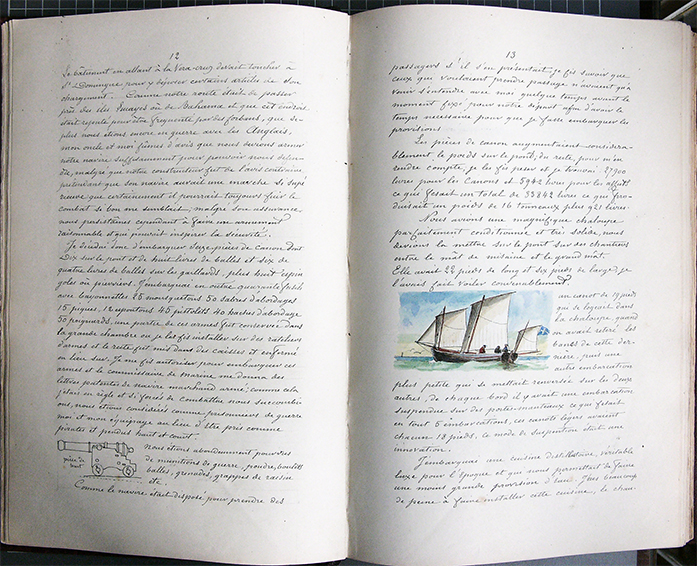 12
Le bâtiment en allant à la Vera-cruz devait toucher à
St Domingue pour y déposer certains articles de son
chargement. Comme notre route était de passer
près des îles Lucayes où de Bahama et que cet endroit
était réputé pour être fréquenté par des forbans, que de
plus nous étions encore en guerre avec les Anglais,
mon oncle et moi fûmes d'avis que nous devions armer
notre navire suffisamment pour pouvoir nous défen-
dre, malgré que notre constructeur fut de l'avis contraire
prétendant que son navire aurait une marche si supé
rieure que certainement il pourrait toujours fuir le
combat si bon me semblait, malgré son assurance
nous persistâmes cependant à faire un armement
raisonnable et qui pouvait inspirer la sécurité.
Je décidai donc d'embarquer seize pièces de canon dont
dix sur le pont et de huit livres de balles et six de
quatre livres de balles sur les gaillards plus huit espin
goles ou pierriers. J'embarquai en outre quarante fusils
avec bayonnettes 25 mousquetons 50 sabres d'abordages
15 piques, 12 espontons 45 pistolets 40 haches d'abordage
50 poignards, une partie de ces armes fut conservée dans
la grande chambre où je les fis installer sur des rateliers
d'armes et le reste fut mis dans des caisses et enfermé
en lieu sur. Je me fis autoriser pour embarquer ces
armes et le commissaire de marine me donna des
lettres patentes de navire marchand armé; comme cela
j'étais en règle et si forcés de combattre nous succombi
ons, nous étions considérés comme prisonniers de guerre
moi et mon équipage au lieu d'être pris comme
pirates et pendus haut et court.
pièce de
huit
Nous étions abondamment pourvus
de munitions de guerre, poudre, boulets
balles, grenades, grappes de raisin
etc.
Comme le navire était disposé pour prendre des
13
passagers s'il s'en présentait, je fis savoir que
ceux qui voulaient prendre passage n'avaient qu'à
venir s'entendre avec moi quelque temps avant le
moment fixé pour notre départ afin d'avoir le
temps nécessaire pour que je fasse embarquer les
provisions
Les pièces de canon augmentaient considéra-
blement le poids sur le pont, du reste pour m'en
rendre compte, je les fis peser et je trouvai 27900
livres pour les canons et 5942 livres pour les affuts
ce qui faisait un total de 33842 livres ce qui pro-
duisait un poids de 16 tonneaux plus 921 livres.
Nous avions une magnifique chaloupe
parfaitement conditionnée et très solide, nous
devions la mettre sur le pont sur des chantiers
entre le mât de misaine et le grand mât.
Elle avait 22 pieds de long et six pieds de large, je
l'avais faite voiler convenablement
un canot de 19 pieds
qui se logeait dans
la chaloupe quand
on avait retiré les
bancs de cette der-
nière, puis une
autre embarcation
plus petite qui se mettait renversée sur les deux
autres, de chaque bord il y avait une embarcation
suspendue sur des porte-manteaux ce qui faisait
en tout 5 embarcations, ces canots légers avaient
chacun 18 pieds, ce mode de suspension était une
innovation.
J'embarquai une cuisine distillatoire, véritable
luxe pour l'époque et qui nous permettait de faire
une moins grande provision d'eau. J'eus beaucoup
de peine à faire installer cette cuisine, le chau.